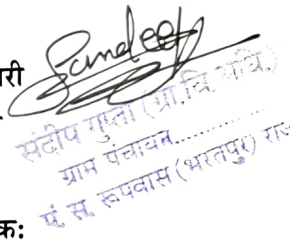 री
Sandeep
संदीप गुप्ता (ग्रा.वि.अधि.)
ग्राम पंचायत..............
क:
पं. स. रूपवास (भरतपुर) राज